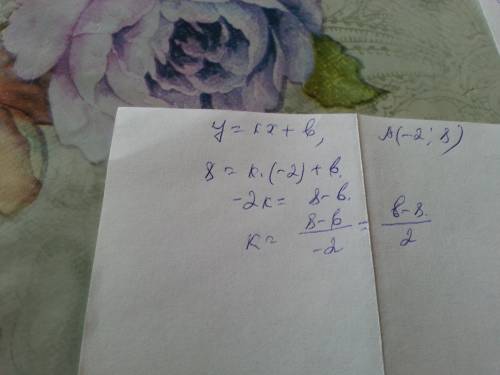 y = kx + b, A(-2; 8)
8 = k·(-2) + b.
-2k = 8 - b.
k = \frac{8-b}{-2} = \frac{b-8}{2}